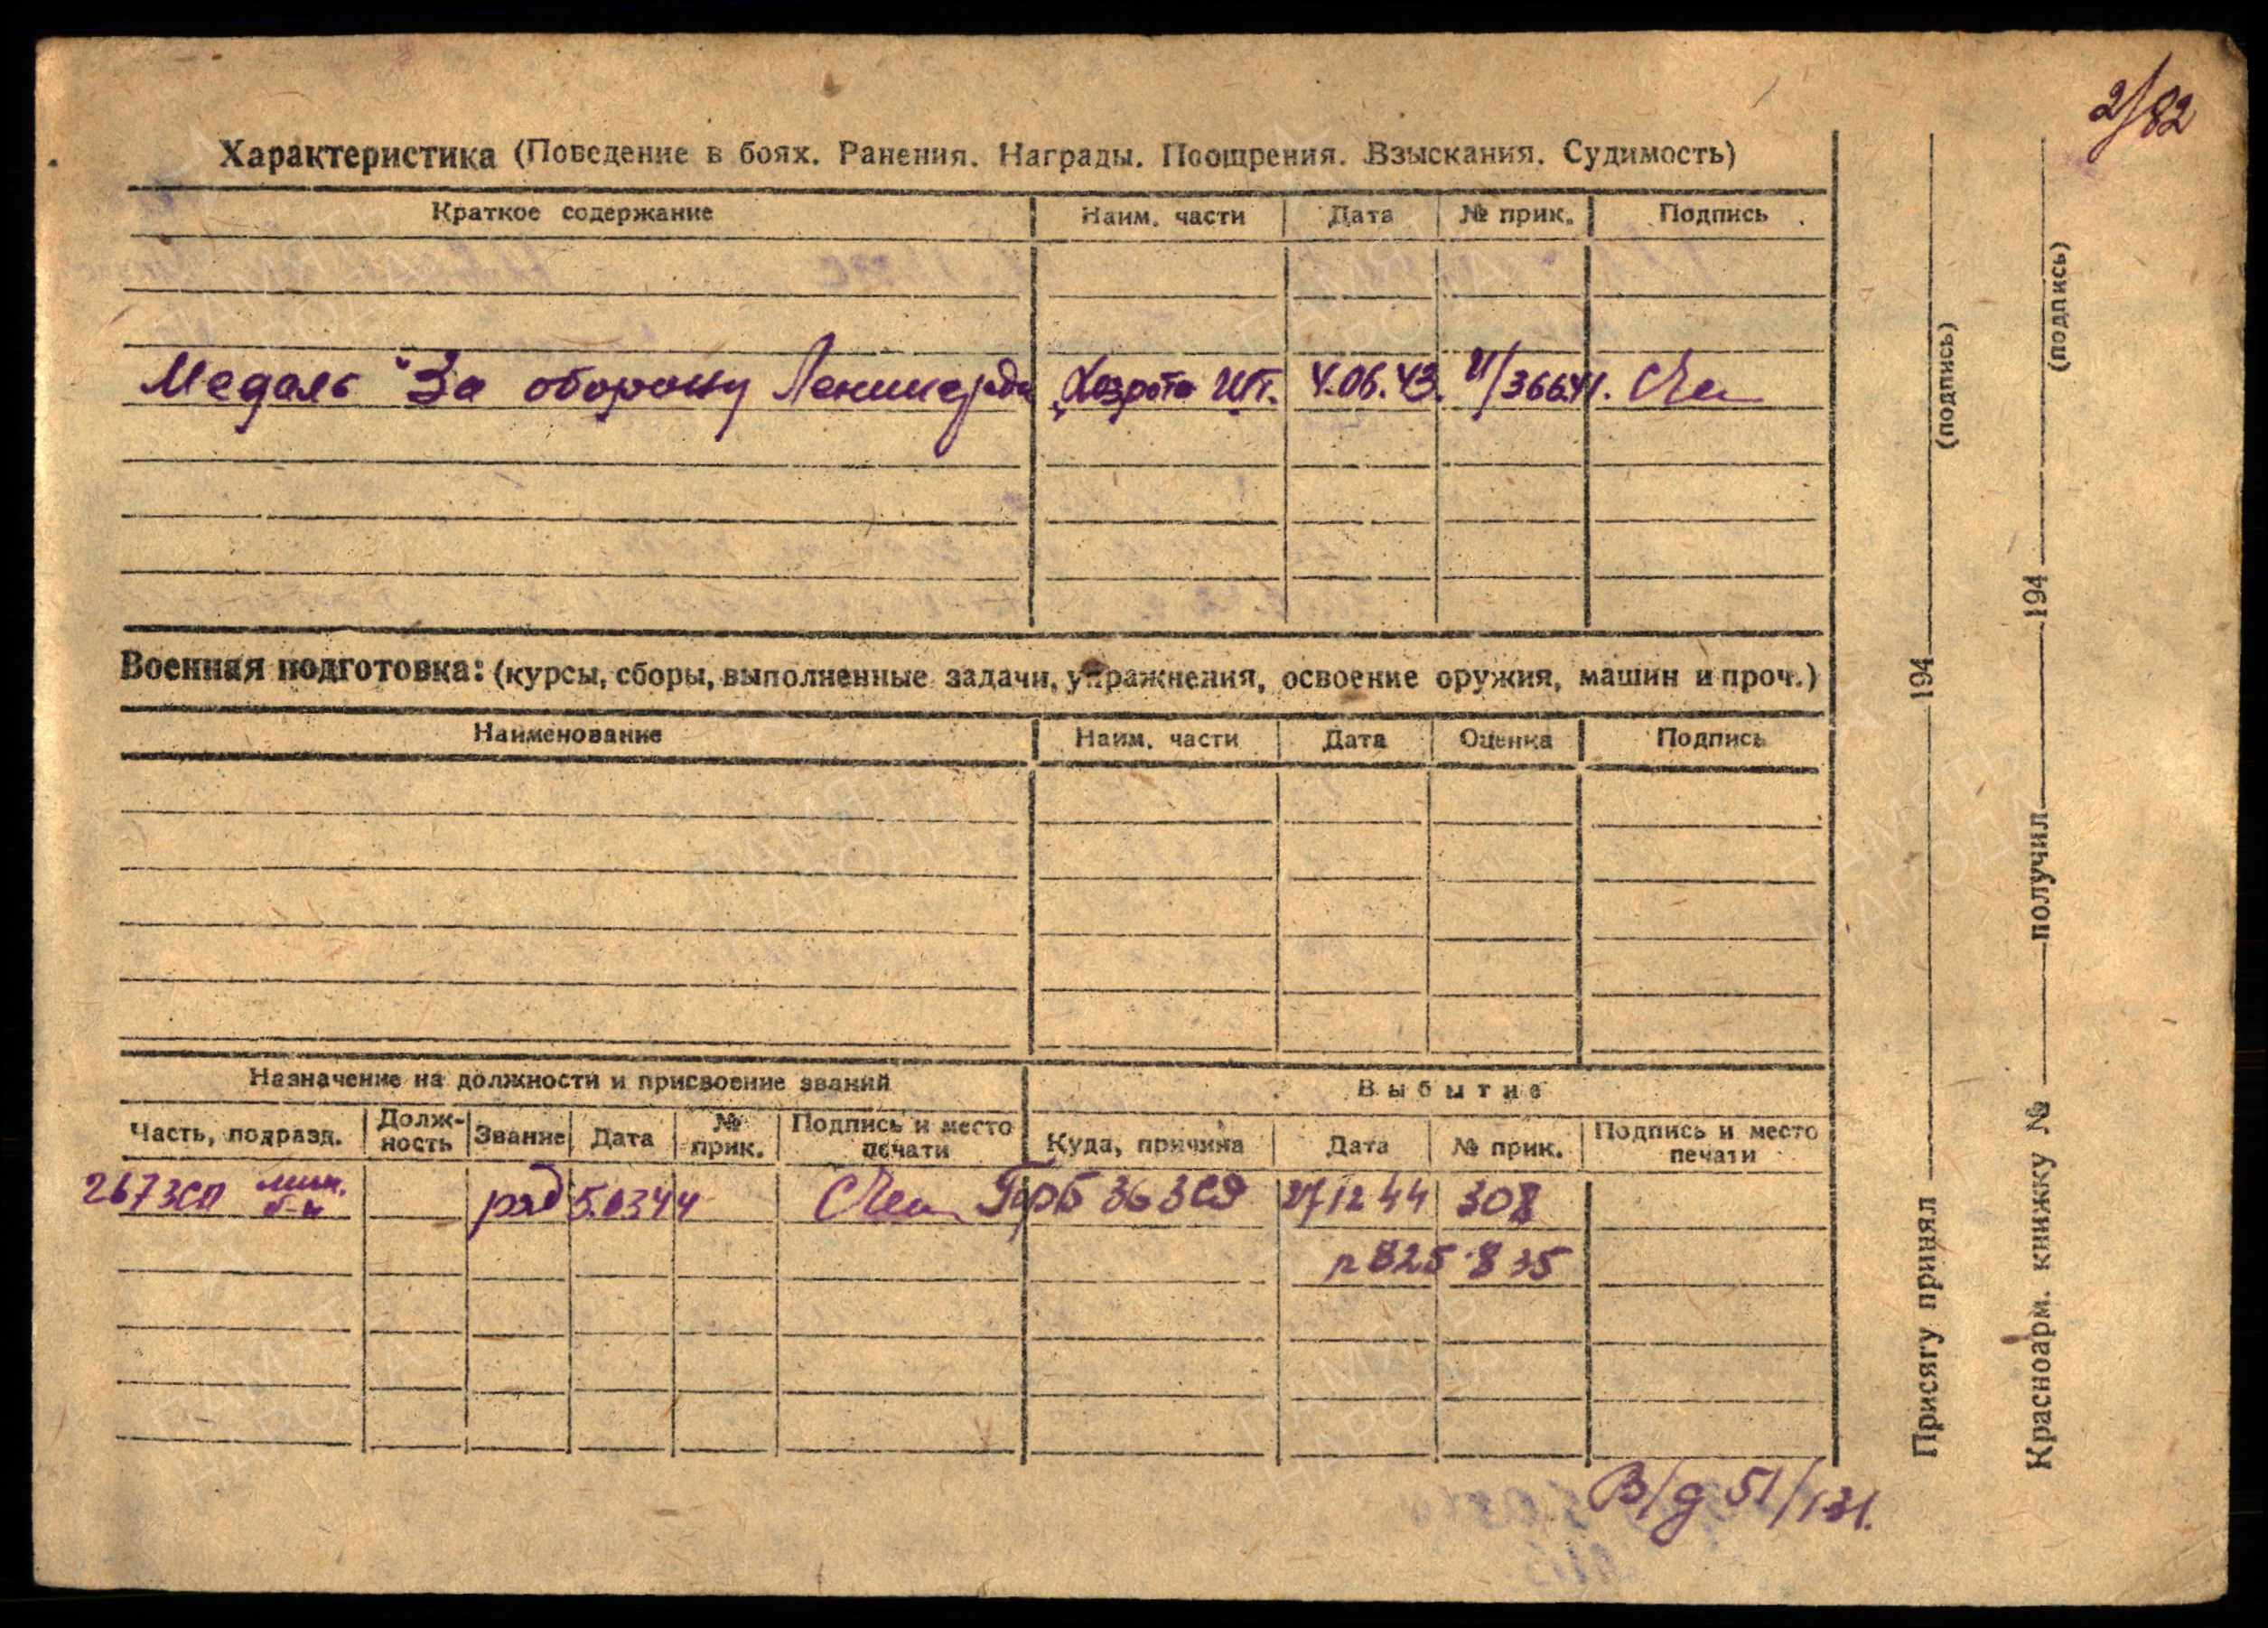 2/82
Характеристика (Поведение в боях. Ранения. Награды. Поощрения. Взыскания. Судимость)
Краткое содержание Наим. части Дата № прик. Подпись
Медаль "За оборону Ленинграда Хозрота 4.06.43.
Военная подготовка: (курсы, сборы, выполненные задачи, упражнения, освоение оружия, машин и проч.)
Наименование Наим. части Дата Оценка Подпись
Назначение на должности и присвоение званий Выбытие
Часть, подразд. Долж-ность Звание Дата № прик. Подпись и место печати Куда, причина Дата № прик. Подпись и место печати
267 зсп мин. б-н ряд 5.03 44 36 зсд 27 12 44 308
п 825 835
В/д 51/131.
Присягу принял 194 (подпись)
Красноарм. книжку № получил 194 (подпись)